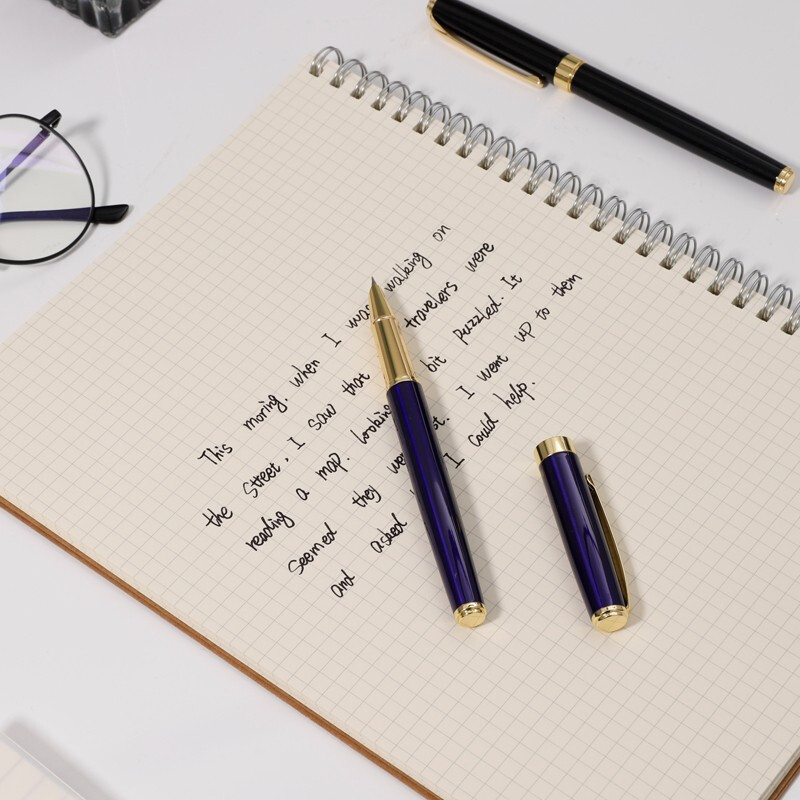 This moring, when I was walking on
the street, I saw that travelers were
reading a map. looking bit puzzled. It
seemed they I went up to them
and asked I could help.